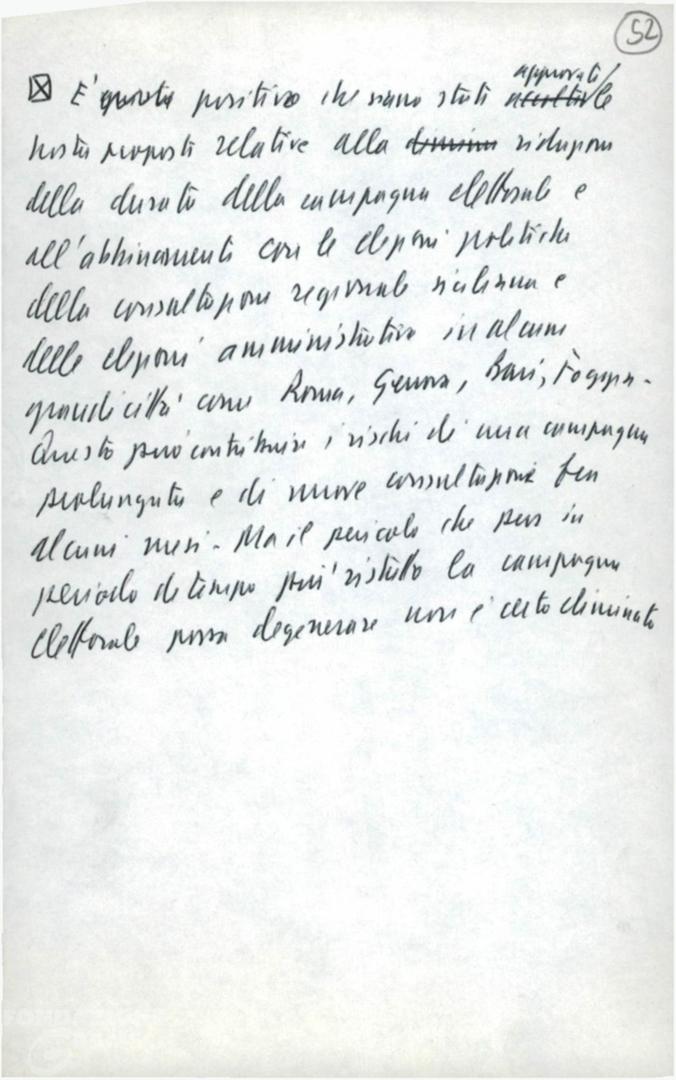 52
approvate
È positivo che siano state accolte le
nostre proposte relative alla riduzione
della durata della campagna elettorale e
all'abbinamento con le elezioni politiche
della consultazione regionale siciliana e
delle elezioni amministrative in alcune
grandi città come Roma, Genova, Bari, Foggia.
Questo può i rischi di una campagna
prolungata e di nuove consultazioni fra
alcuni mesi. Ma il pericolo che pur in
periodo di tempo più ristretto la campagna
elettorale possa degenerare non è certo eliminato